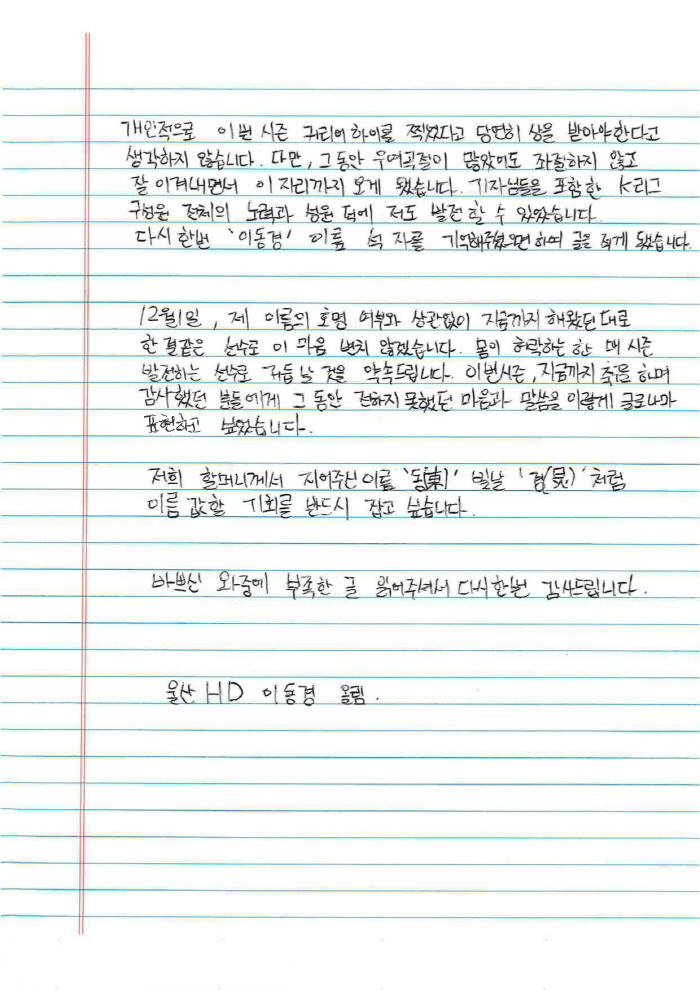 개인적으로 이번 시즌 커리어하이를 찍었다고 당연히 상을 받아야한다고
생각하지 않습니다. 다만, 그동안 우여곡절이 많았어도 좌절하지 않고
잘 이겨내면서 이 자리까지 오게 됐습니다. 기자님들을 포함한 K리그
구성원 전체의 노력과 성원 덕에 저도 발전할 수 있었습니다.
다시 한번 '이동경' 이름 석 자를 기억해주셨으면하여 글을 적게 됐습니다.
12월1일, 제 이름의 호명 여부와 상관없이 지금까지 해왔던 대로
한결같은 선수로 이 마음 변치 않겠습니다. 몸이 허락하는 한 매 시즌
발전하는 선수로 거듭날 것을 약속드립니다. 이번시즌, 지금까지 축구를 하며
감사했던 분들에게 그 동안 전하지 못했던 마음과 말씀을 이렇게 글로나마
표현하고 싶었습니다.
저희 할머니께서 지어주신 이름 '동(東)' 빛날 '경(炅)'처럼
이름 값할 기회를 반드시 잡고 싶습니다.
바쁘신 와중에 부족한 글 읽어주셔서 다시한번 감사드립니다.
울산 HD 이동경 올림.